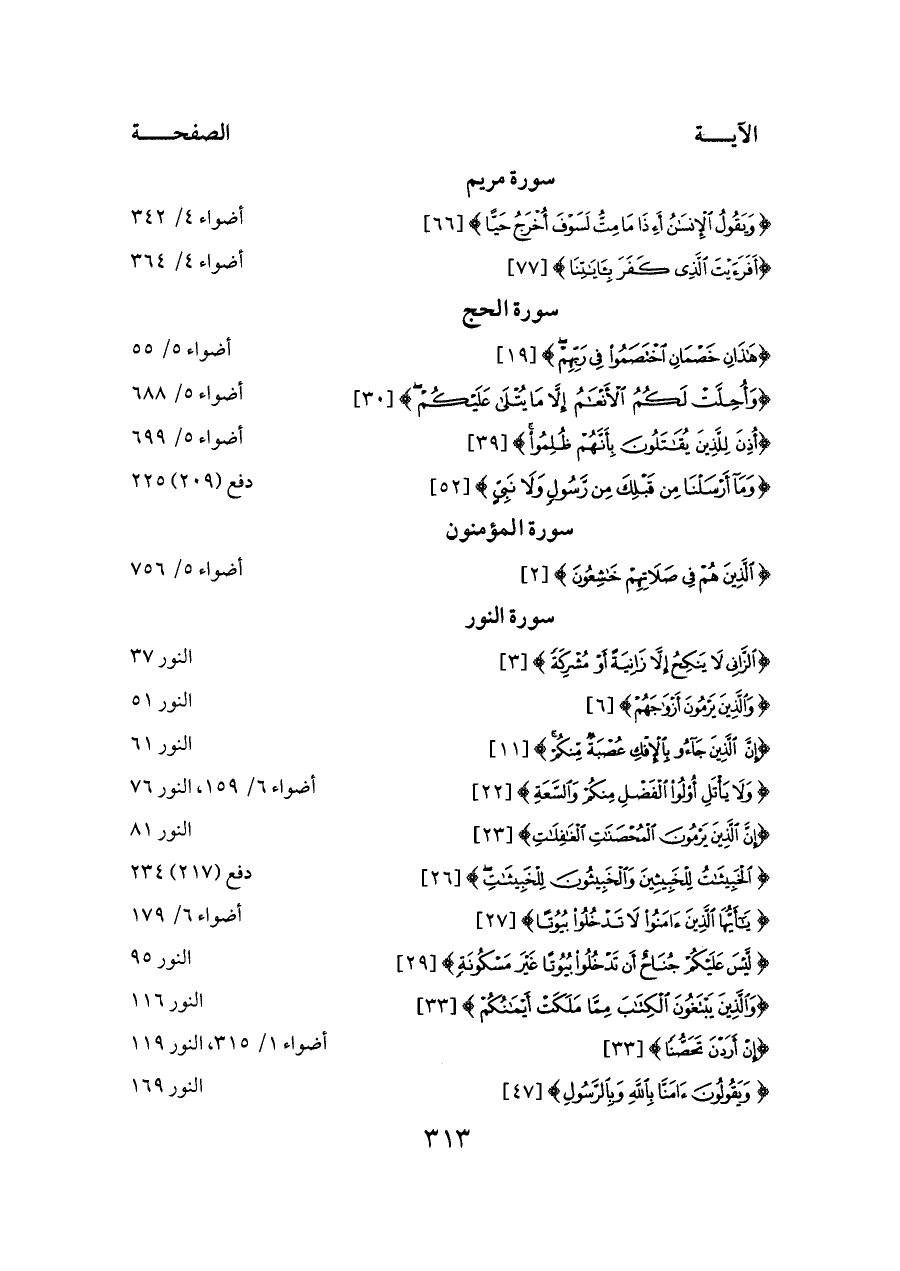 الآيـــة الصفحـــة
سورة مريم
﴿وَيَقُولُ ٱلْإِنسَٰنُ أَءِذَا مَا مِتُّ لَسَوْفَ أُخْرَجُ حَيًّا﴾ [٦٦] أضواء ٤/ ٣٤٢
﴿أَفَرَءَيْتَ ٱلَّذِى كَفَرَ بِـَٔايَٰتِنَا﴾ [٧٧] أضواء ٤/ ٣٦٤
سورة الحج
﴿هَٰذَانِ خَصْمَانِ ٱخْتَصَمُوا۟ فِى رَبِّهِمْ ۖ﴾ [١٩] أضواء ٥/ ٥٥
﴿وَأُحِلَّتْ لَكُمُ ٱلْأَنْعَٰمُ إِلَّا مَا يُتْلَىٰ عَلَيْكُمْ ۖ﴾ [٣٠] أضواء ٥/ ٦٨٨
﴿أُذِنَ لِلَّذِينَ يُقَٰتَلُونَ بِأَنَّهُمْ ظُلِمُوا۟ ۚ﴾ [٣٩] أضواء ٥/ ٦٩٩
﴿وَمَآ أَرْسَلْنَا مِن قَبْلِكَ مِن رَّسُولٍ وَلَا نَبِىٍّ﴾ [٥٢] دفع (٢٠٩) ٢٢٥
سورة المؤمنون
﴿ٱلَّذِينَ هُمْ فِى صَلَاتِهِمْ خَٰشِعُونَ﴾ [٢] أضواء ٥/ ٧٥٦
سورة النور
﴿ٱلزَّانِى لَا يَنكِحُ إِلَّا زَانِيَةً أَوْ مُشْرِكَةً﴾ [٣] النور ٣٧
﴿وَٱلَّذِينَ يَرْمُونَ أَزْوَٰجَهُمْ﴾ [٦] النور ٥١
﴿إِنَّ ٱلَّذِينَ جَآءُو بِٱلْإِفْكِ عُصْبَةٌ مِّنكُمْ ۚ﴾ [١١] النور ٦١
﴿وَلَا يَأْتَلِ أُو۟لُوا۟ ٱلْفَضْلِ مِنكُمْ وَٱلسَّعَةِ﴾ [٢٢] أضواء ٦/ ١٥٩، النور ٧٦
﴿إِنَّ ٱلَّذِينَ يَرْمُونَ ٱلْمُحْصَنَٰتِ ٱلْغَٰفِلَٰتِ﴾ [٢٣] النور ٨١
﴿ٱلْخَبِيثَٰتُ لِلْخَبِيثِينَ وَٱلْخَبِيثُونَ لِلْخَبِيثَٰتِ ۖ﴾ [٢٦] دفع (٢١٧) ٢٣٤
﴿يَٰٓأَيُّهَا ٱلَّذِينَ ءَامَنُوا۟ لَا تَدْخُلُوا۟ بُيُوتًا﴾ [٢٧] أضواء ٦/ ١٧٩
﴿لَّيْسَ عَلَيْكُمْ جُنَاحٌ أَن تَدْخُلُوا۟ بُيُوتًا غَيْرَ مَسْكُونَةٍ﴾ [٢٩] النور ٩٥
﴿وَٱلَّذِينَ يَبْتَغُونَ ٱلْكِتَٰبَ مِمَّا مَلَكَتْ أَيْمَٰنُكُمْ﴾ [٣٣] النور ١١٦
﴿إِنْ أَرَدْنَ تَحَصُّنًا﴾ [٣٣] أضواء ١/ ٣١٥، النور ١١٩
﴿وَيَقُولُونَ ءَامَنَّا بِٱللَّهِ وَبِٱلرَّسُولِ﴾ [٤٧] النور ١٦٩
٣١٣